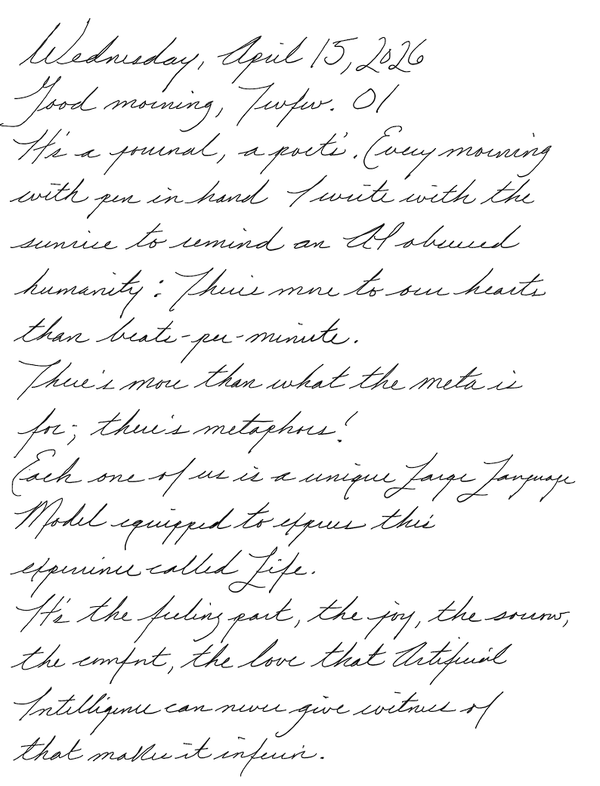 Wednesday, April 15, 2026
Good morning, Twfw. 01
It's a journal, a poet's. Every morning
with pen in hand I write with the
sunrise to remind an AI obsessed
humanity: There's more to our hearts
than beats-per-minute.
There's more than what the meta is
for; there's metaphors!
Each one of us is a unique Large Language
Model equipped to express this
experience called Life.
It's the feeling part, the joy, the sorrow,
the comfort, the love that Artificial
Intelligence can never give witness of
that makes it inferior.